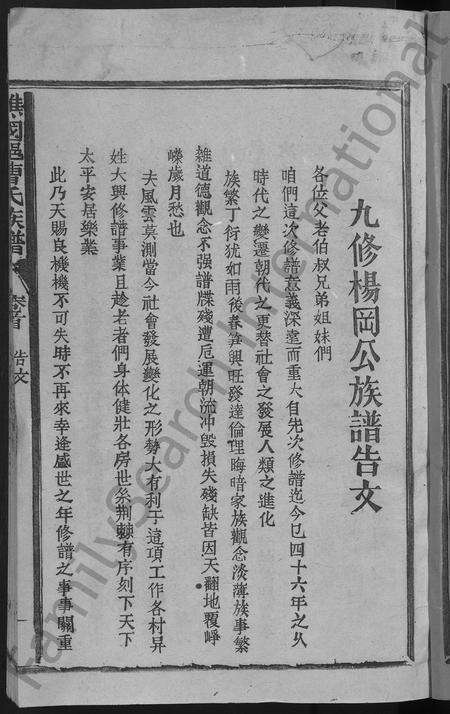 九修楊岡公族譜告文
各位父老伯叔兄弟姐妹們
咱們這次修譜意義深遠而重大自先次修譜迄今已四十六年之久
時代之變遷朝代之更替社會之發展人類之進化
族繁丁衍犹如雨後春笋興旺發達倫理晦暗家族觀念淡薄族事繁
雜道德觀念不强譜牒残遭厄運朝流冲毁損失殘缺皆因天翻地覆崢
嶸歲月愁也
夫風雲莫測當今社會發展變化之形勢大有利于這項工作各村昇
姓大興修譜事業且趁老者們身体健壯各房世系荆棘有序刻下天下
太平安居樂業
此乃天賜良機機不可失時不再來幸逢盛世之年修譜之事事關重
譙國邑曹氏族譜
卷首
告文
一
FamilySearch International